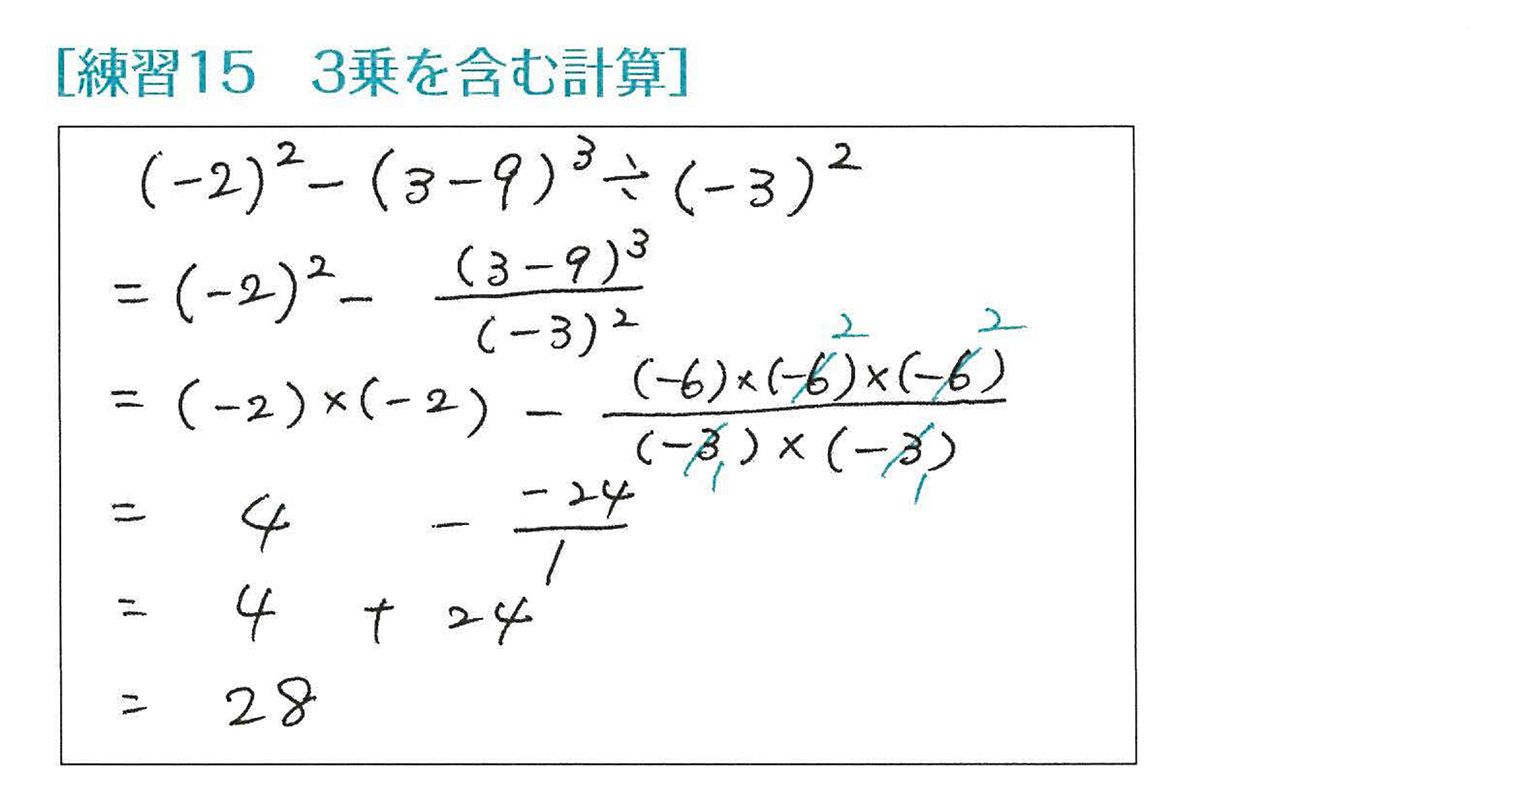 [練習15　3乗を含む計算]
(-2)² - (3-9)³ ÷ (-3)²
= (-2)² - (3-9)³/(-3)²
2 2
= (-2)×(-2) - (-6)×(-6)×(-6)/(-3)×(-3)
1 1
= 4 - -24/1
= 4 + 24
= 28